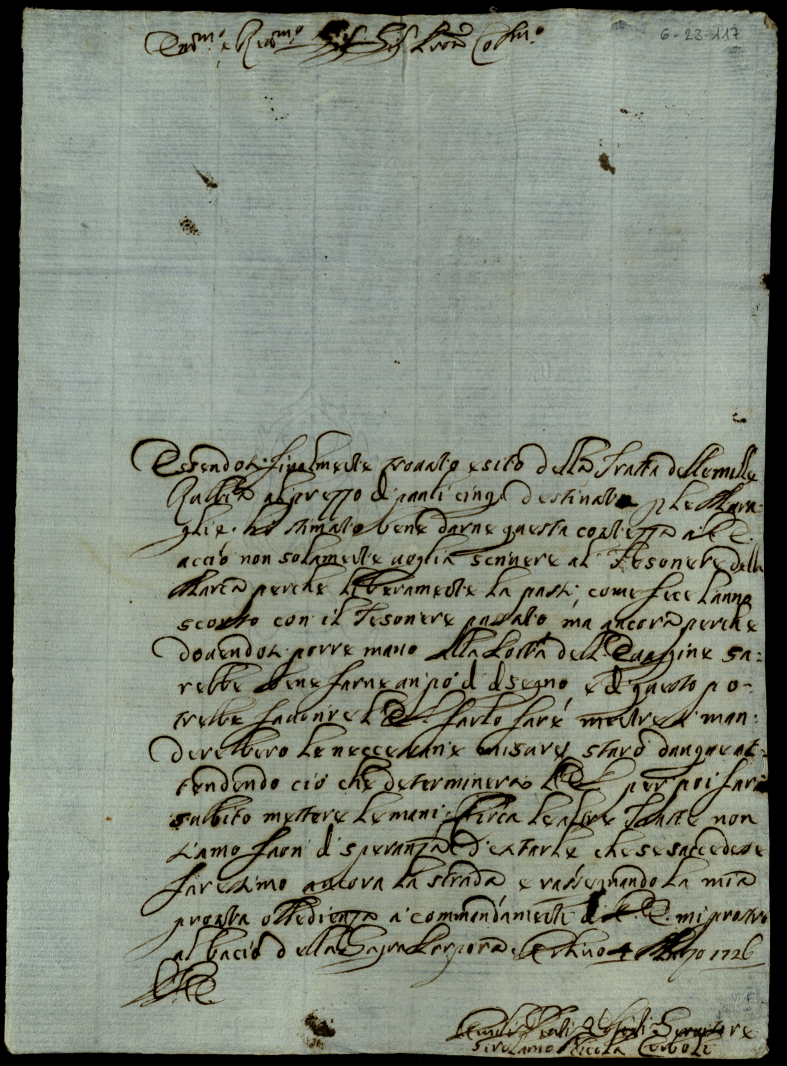 6-23-117
Em̄mo e Revmo Sig. Sig. Pron Colmo
Essendosi finalmente trovato esito della Tratta delle mille
Rubbia al prezzo di paoli cinq. destinato p le Mura-
glie. ho stimato bene darne questa contezza a V. E.
acciò non solamente voglia scrivere al Tesoriere della
Marca perche liberamente la passi, come fece l'anno
scorso con il Tesoriere passato, ma ancora perche
dovendosi porre mano alla Porta dell' sa=
rebbe bene farne un pò di disegno, e di questo po-
trebbe favorire V. E. farlo fare, mentre si man-
derebbero le neccessarie misure, starò dunque at-
tendendo ciò che determinerà V. E. per poi far
subito mettere le mani. Circa le altre Tratte non
siamo fuori di speranza d'esitarle che se saccedesse
faressimo ancora la strada e rassegnando la mia
pronta obbedienza a commandamenti di V. E. mi prostro
al bacio della Sagra Porpora. 4 Marzo 1726
V. E.
Servitore
Girolamo Nicola